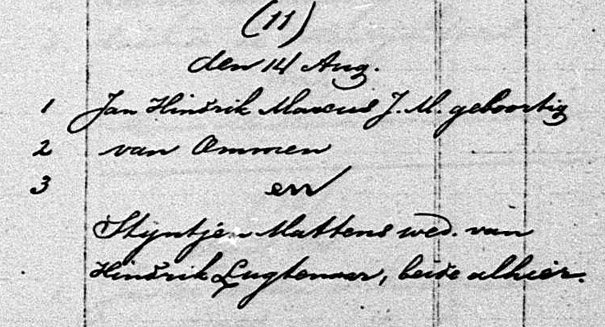 (11)
den 14 Aug.
1 Jan Hindrik Marcus J. M. geboortig
2 van Ommen
3 en
Stijntjen Mattens wed. van
Hindrik Lugtenaar, beide alhier.